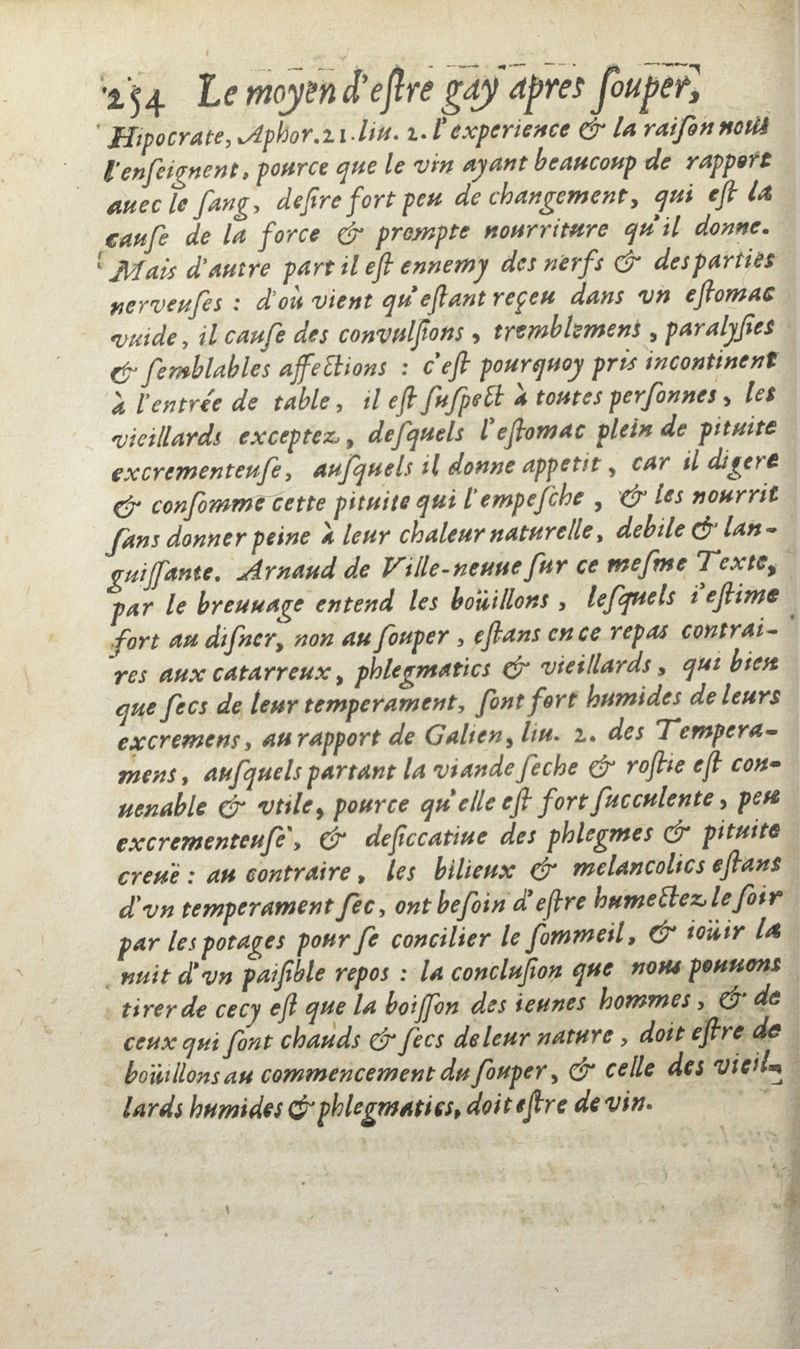 254 Le moyen d'eſtre gay apres ſouper,
Hipocrate, Aphor. 21. liu. 2. l'experience & la raiſon nous
l'enſeignent, pource que le vin ayant beaucoup de rapport
auec le ſang, deſire fort peu de changement, qui eſt la
cauſe de la force & prompte nourriture qu'il donne.
Mais d'autre part il eſt ennemy des nerfs & des parties
nerveuſes : d'où vient qu'eſtant reçeu dans vn eſtomac
vuide, il cauſe des convulſions, tremblemens, paralyſies
& ſemblables affections : c'eſt pourquoy pris incontinent
à l'entrée de table, il eſt ſuſpect à toutes perſonnes, les
vieillards exceptez, deſquels l'eſtomac plein de pituite
excrementeuſe, auſquels il donne appetit, car il digere
& conſomme cette pituite qui l'empeſche, & les nourrit
ſans donner peine à leur chaleur naturelle, debile & lan-
guiſſante. Arnaud de Ville-neuue ſur ce meſme Texte,
par le breuuage entend les boüillons, leſquels i'eſtime
fort au diſner, non au ſouper, eſtans en ce repas contrai-
res aux catarreux, phlegmatics & vieillards, qui bien
que ſecs de leur temperament, ſont fort humides de leurs
excremens, au rapport de Galien, liu. 2. des Tempera-
mens, auſquels partant la viande ſeche & roſtie eſt con-
uenable & vtile, pource qu'elle eſt fort ſucculente, peu
excrementeuſe, & deſiccatiue des phlegmes & pituite
creuë : au contraire, les bilieux & melancolics eſtans
d'vn temperament ſec, ont beſoin d'eſtre humectez le ſoir
par les potages pour ſe concilier le ſommeil, & ioüir la
nuit d'vn paiſible repos : la concluſion que nous pouuons
tirer de cecy eſt que la boiſſon des ieunes hommes, & de
ceux qui ſont chauds & ſecs de leur nature, doit eſtre de
boüillons au commencement du ſouper, & celle des vieil-
lards humides & phlegmatics, doit eſtre de vin.